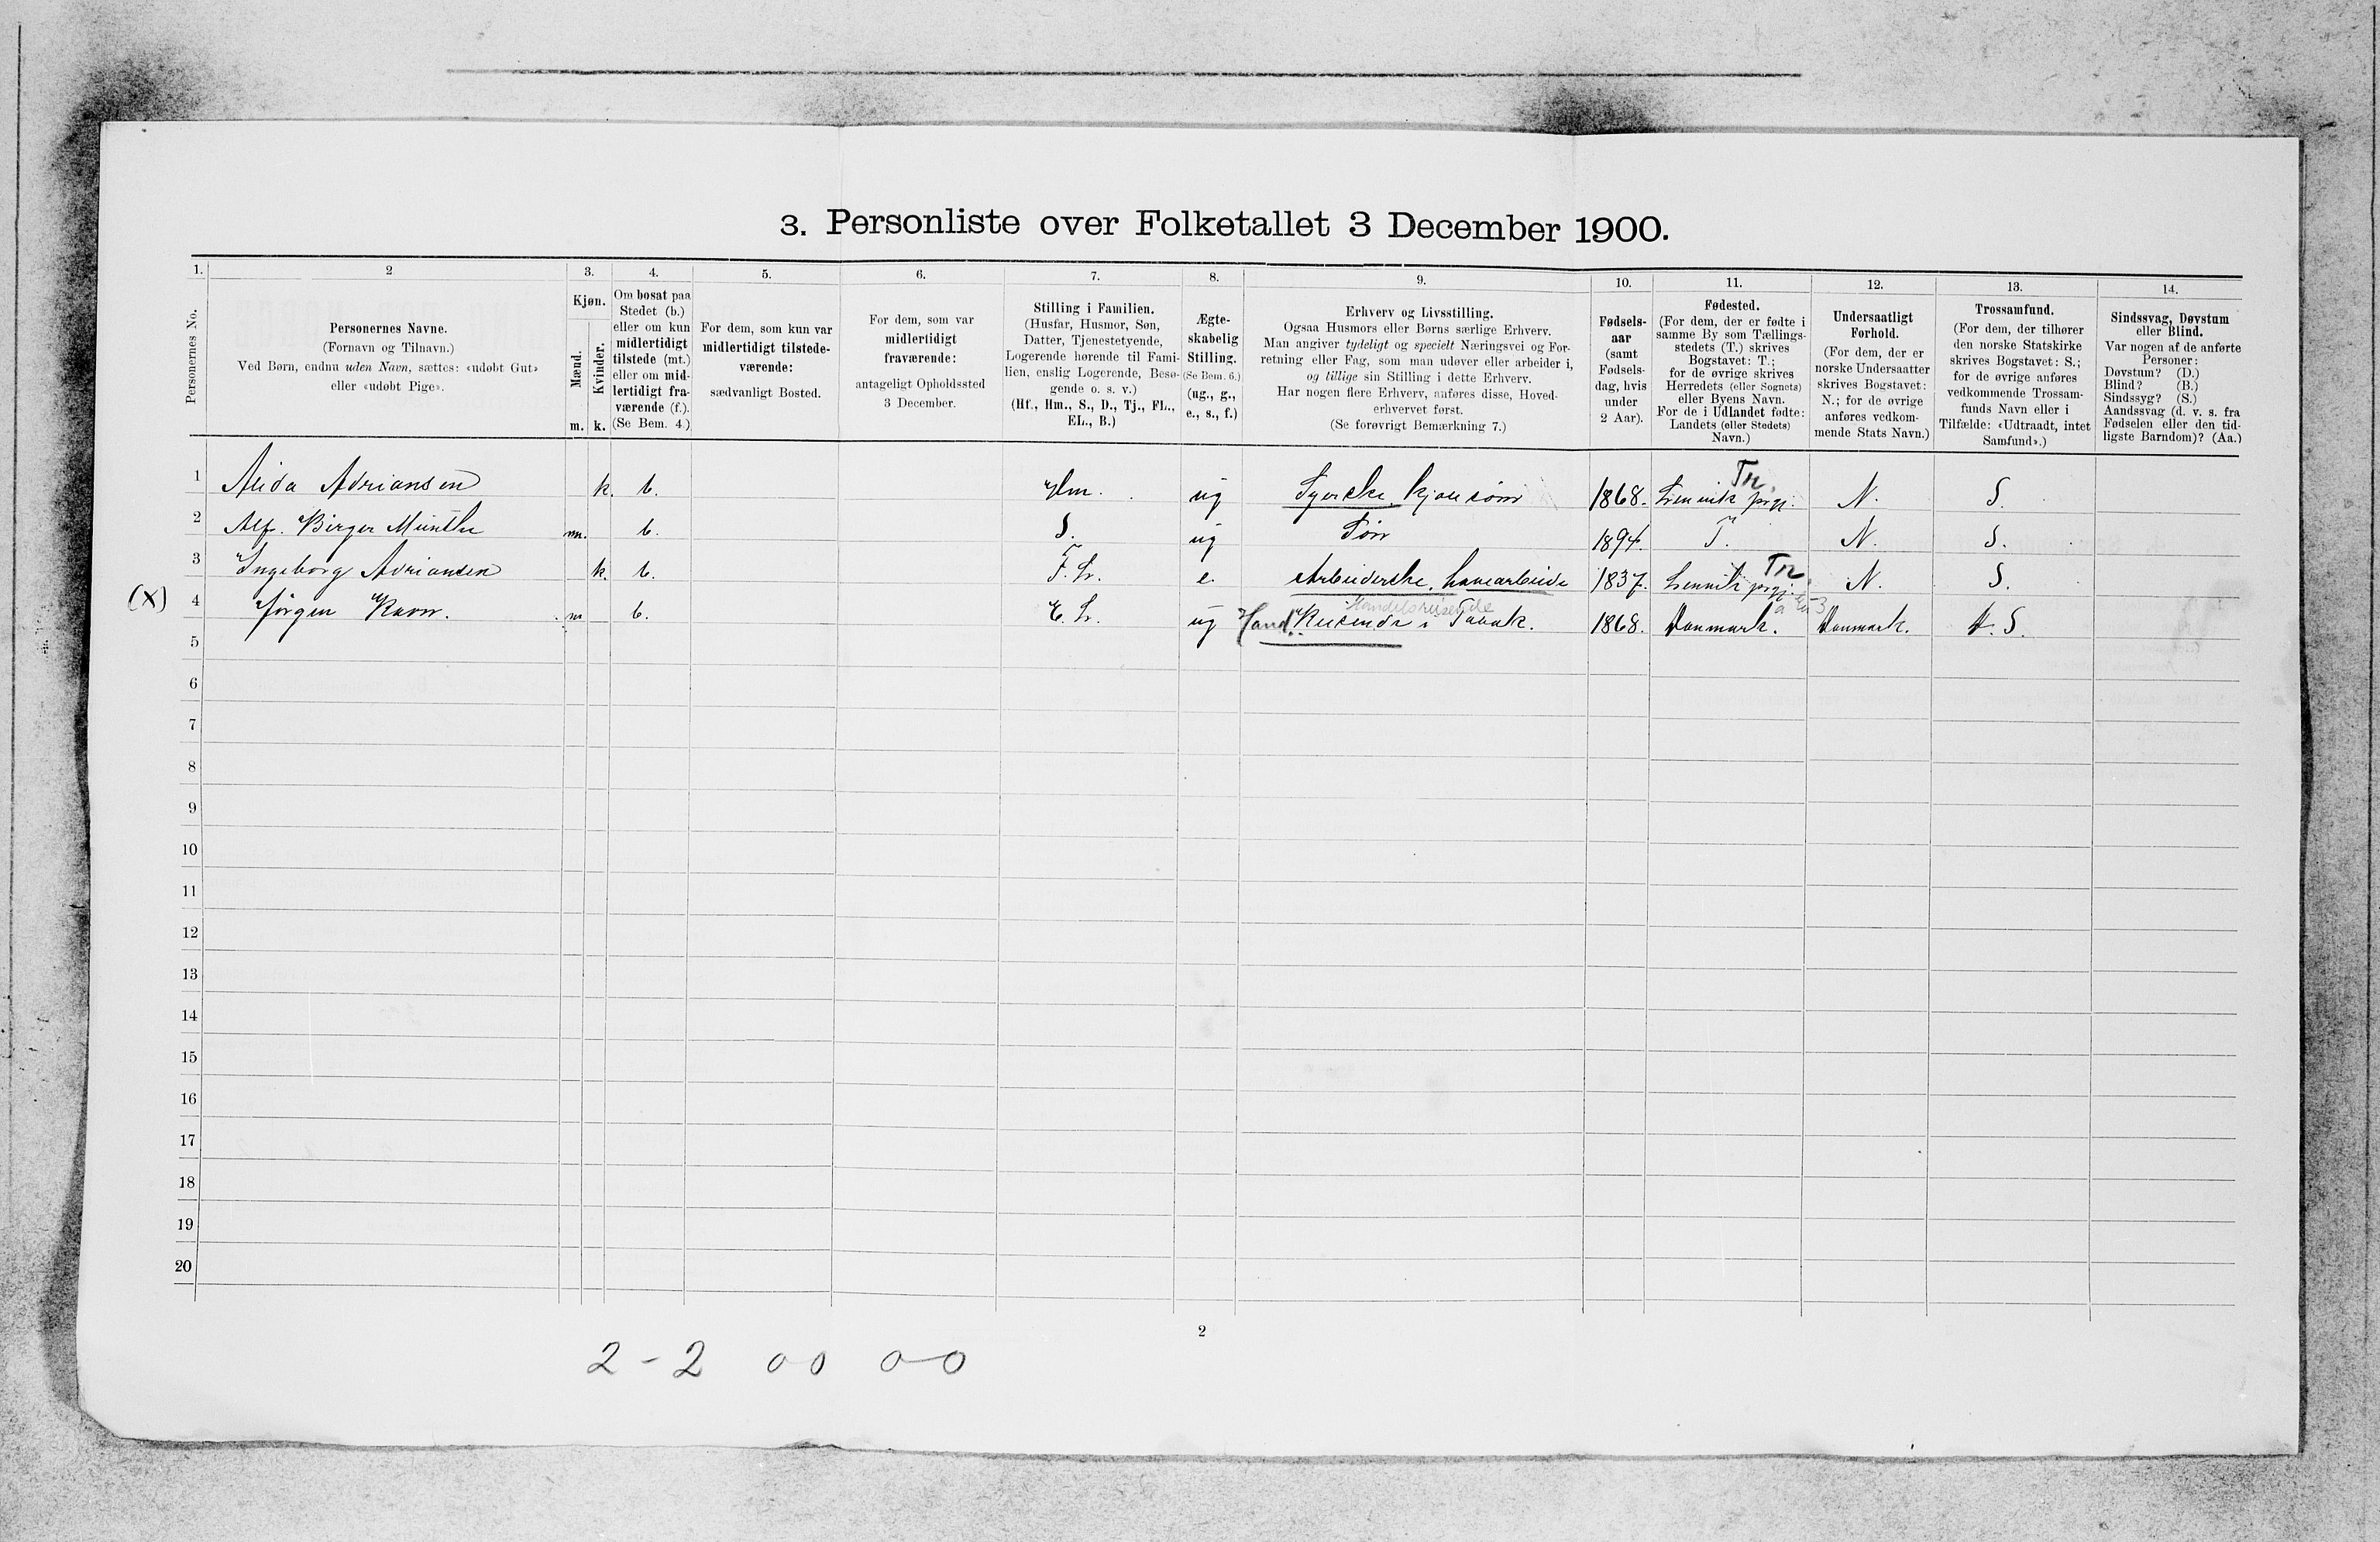 3. Personliste over Folketallet 3 December 1900.
1. 2 3. 4. 5. 6. 7. 8. 9. 10. 11. 12. 13. 14.
Personernes No.
Personernes Navne.
(Fornavn og Tilnavn.)
Ved Børn, endnu uden Navn, sættes: «udøbt Gut»
eller «udøbt Pige».
Kjøn.
Mænd.
Kvinder.
m. k.
Om bosat paa
Stedet (b.)
eller om kun
midlertidigt
tilstede (mt.)
eller om mid-
lertidigt fra-
værende (f.).
(Se Bem. 4.)
For dem, som kun var
midlertidigt tilstede-
værende:
sædvanligt Bosted.
For dem, som var
midlertidigt
fraværende:
antageligt Opholdssted
3 December.
Stilling i Familien.
(Husfar, Husmor, Søn,
Datter, Tjenestetyende,
Logerende hørende til Fami-
lien, enslig Logerende, Besø-
gende o. s. v.)
(Hf., Hm., S., D., Tj., FL.,
EL., B.)
Ægte-
skabelig
Stilling.
(Se Bem. 6.)
(ug., g.,
e., s., f.)
Erhverv og Livsstilling.
Ogsaa Husmors eller Børns særlige Erhverv.
Man angiver tydeligt og specielt Næringsvei og For-
retning eller Fag, som man udøver eller arbeider i,
og tillige sin Stilling i dette Erhverv.
Har nogen flere Erhverv, anføres disse, Hoved-
erhvervet først.
(Se forøvrigt Bemærkning 7.)
Fødsels-
aar
(samt
Fødsels-
dag, hvis
under
2 Aar).
Fødested.
(For dem, der er fødte i
samme By som Tællings-
stedets (T.) skrives
Bogstavet: T.;
for de øvrige skrives
Herredets (eller Sognets)
eller Byens Navn.
For de i Udlandet fødte:
Landets (eller Stedets)
Navn.)
Undersaatligt
Forhold.
(For dem, der er
norske Undersaatter
skrives Bogstavet:
N.; for de øvrige
anføres vedkom-
mende Stats Navn.)
Trossamfund.
(For dem, der tilhører
den norske Statskirke
skrives Bogstavet: S.;
for de øvrige anføres
vedkommende Trossam-
funds Navn eller i
Tilfælde: «Udtraadt, intet
Samfund».)
Sindssvag, Døvstum
eller Blind.
Var nogen af de anførte
Personer:
Døvstum? (D.)
Blind? (B.)
Sindssyg? (S.)
Aandssvag (d. v. s. fra
Fødselen eller den tid-
ligste Barndom)? (Aa.)
Tn.
1 Alida Adriansen k. b. Hm. ug Syerske, kjolesöm 1868. prgj. N. S.
2 Alf. Birger Münthe m. b. S. ug Sön 1894. T. N. S.
Tn.
3 Ingeborg Adriansen k. b. F. L. e. Arbeiderske, havearbeide 1837. prgj. N. S.
Handelsreisende
(X) 4 Jörgen Ravn. m b. E. L. ug Hand. Reisende i Tobak. 1868. Danmark. Danmark. S.
5
6
7
8
9
10
11
12
13
14
15
16
17
18
19
20
2
2 - 2 0 0 0-0